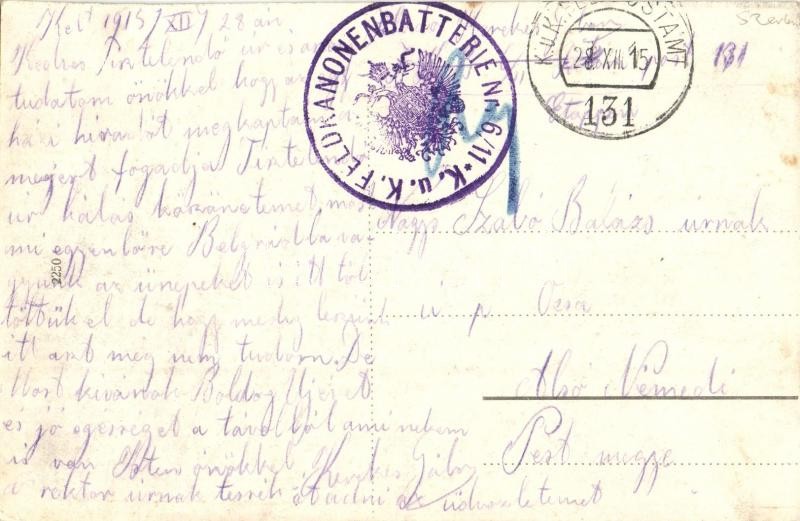 Kelt 1915 / XII / 28 án
Kedves Tisztelendő úr és
tudatom önökkel hogy az
házi hiradót megkaptam
meyért fogadja Tisztelendő
úr hálás köszönetemet most
mi egyenlőre Belgrádba va-
gyunk az ünepeket is itt töl
töttük el de hogy medig leszünk
itt azt még nem tudom. De
Most kivánok Boldog Ujévet
és jó egésséget a távolból ami nekem
is van Isten önökkel Kerekes Gábor
a rektor urnak tessék átadni az üdvözletemet
K.u.K. FELDKANONENBATTERIE Nr. 6/11
K.u.K. FELDPOSTAMT
28 XII 15
131
131
Etappen
Nagys Szabó Balázs úrnak
u p Ocsa
Alsó Némedi
Pest megye
2250